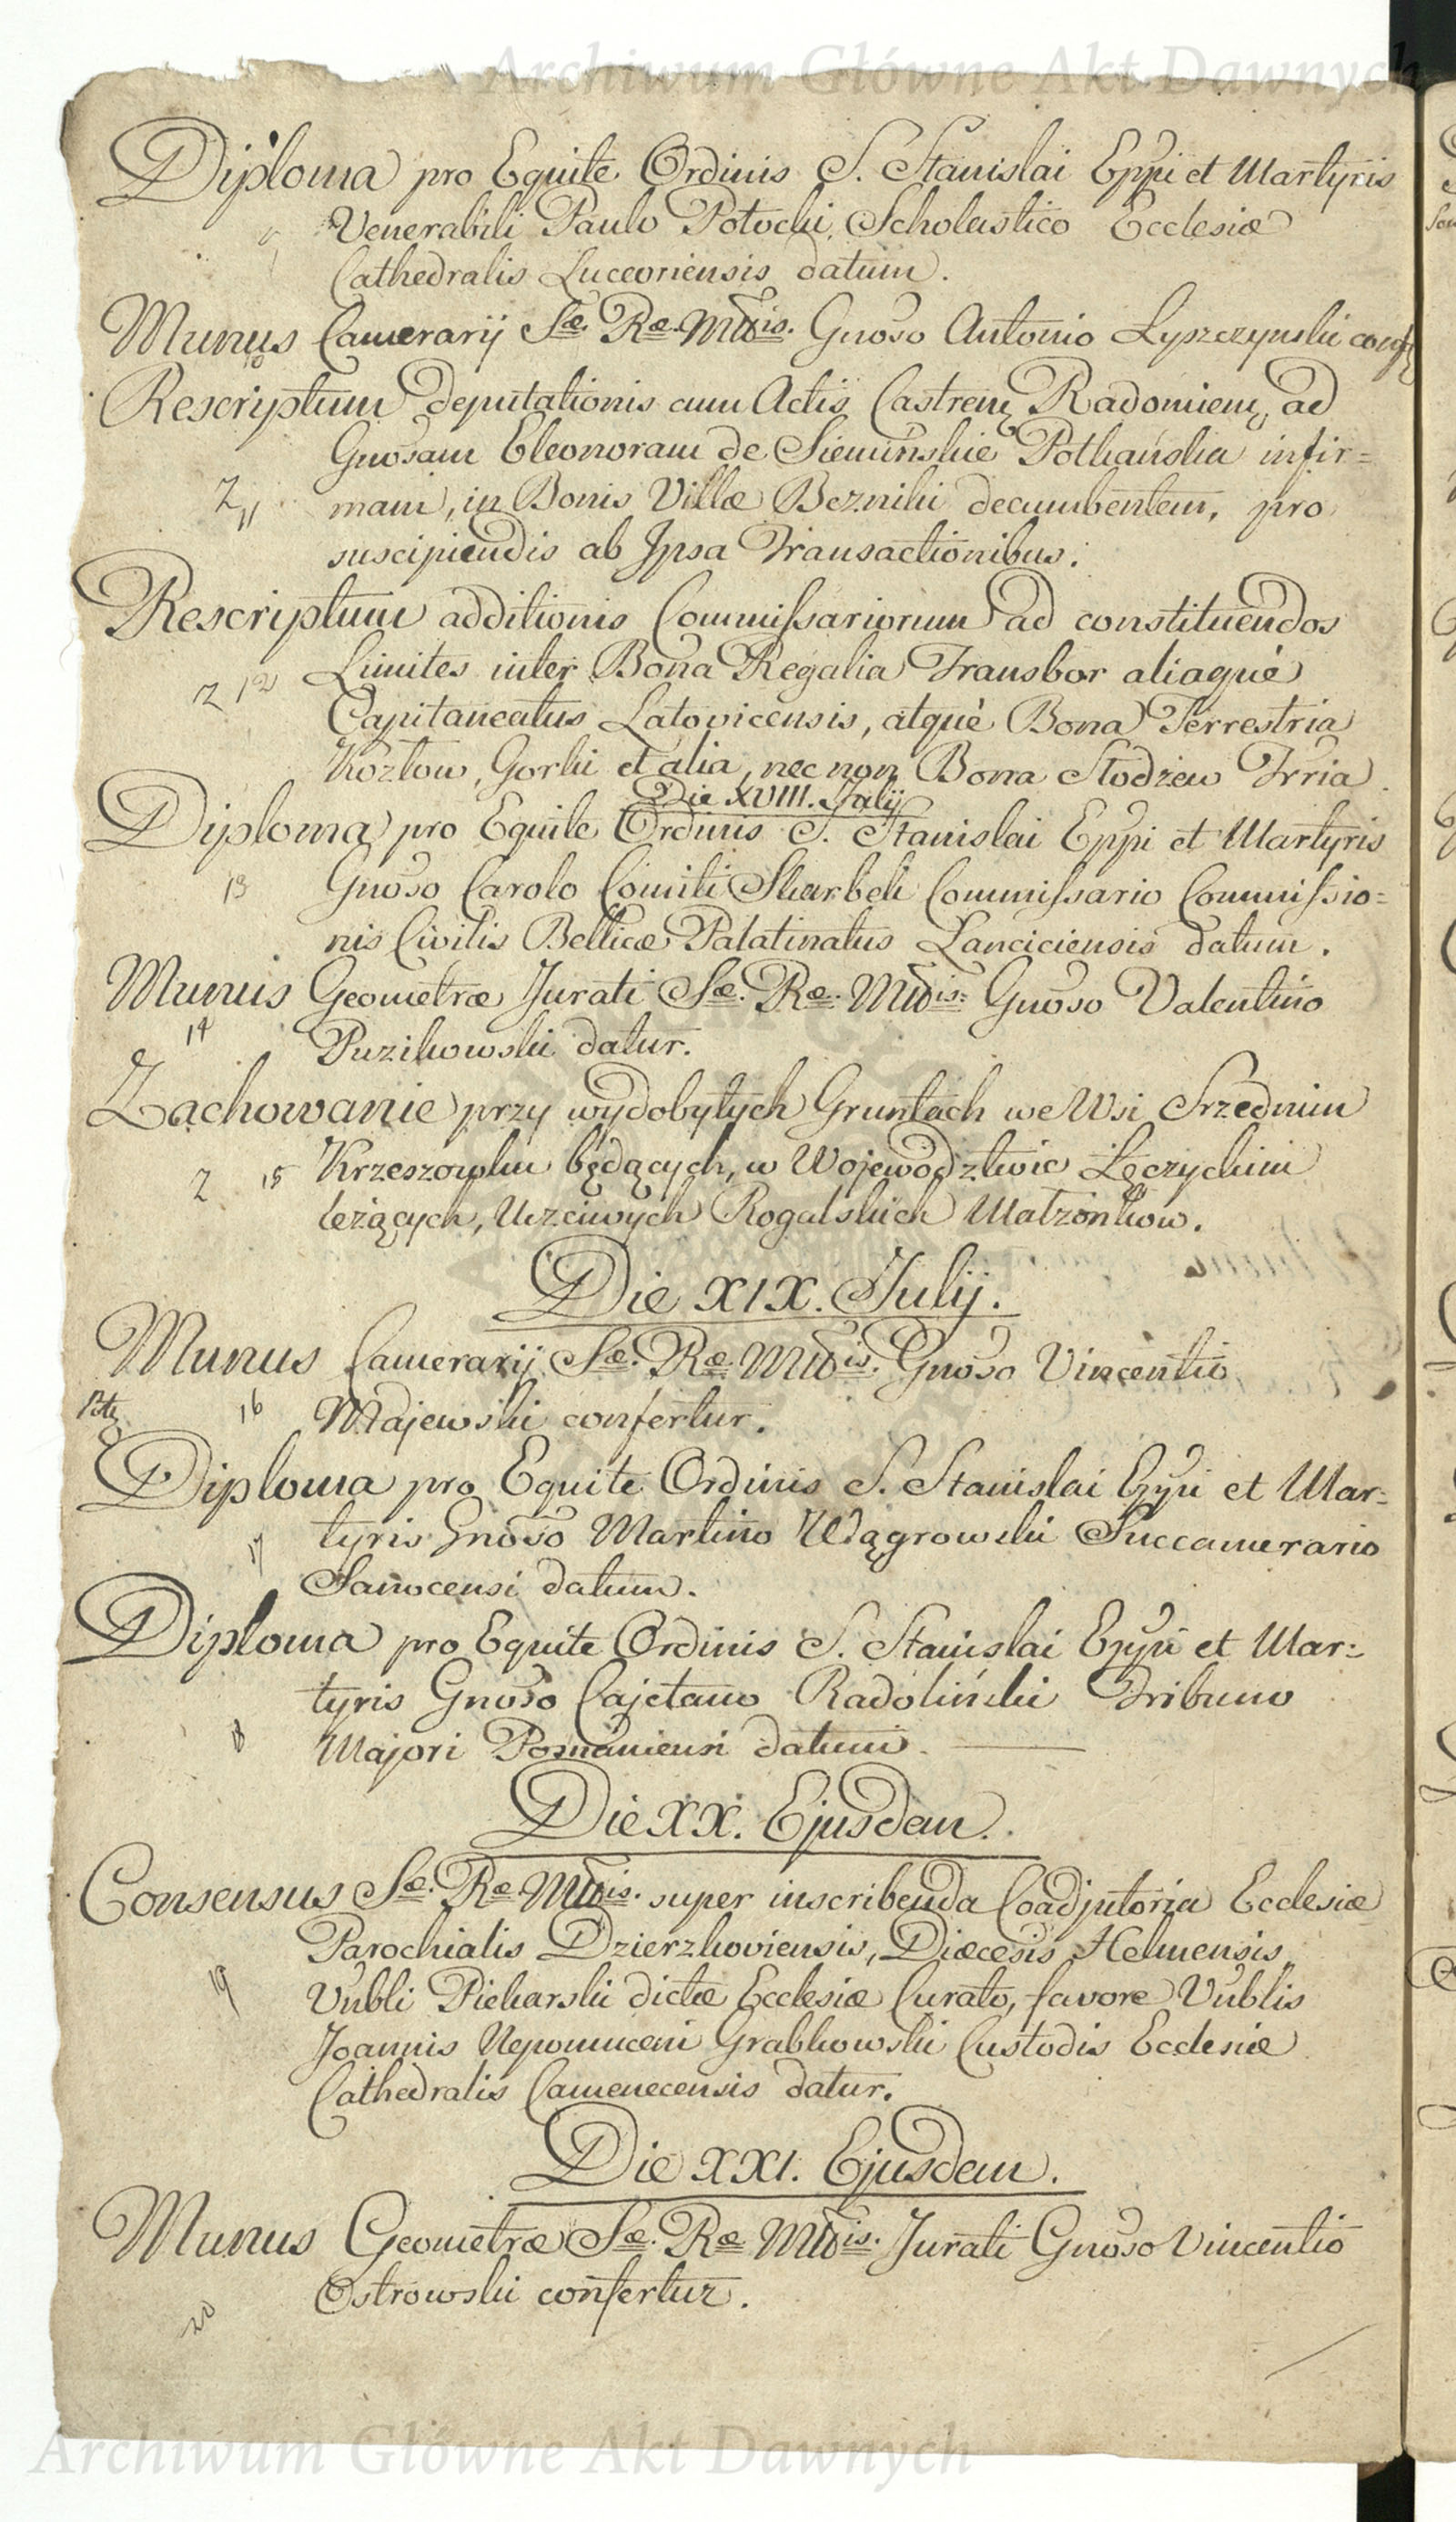 Archiwum Główne Akt Dawnych
Diploma pro Equite Ordinis S. Stanislai Eppi et Martyris
Venerabili Paulo Potocki Scholastico Ecclesiæ
Cathedralis Luceoriensis datum.
Munus Camerarij Sæ. Ræ. Mttis. Gnoso Antonio Lyszczynski
10
Rescriptum deputationis cum Actis Castren Radomien ad
Gnosam Eleonoram de Siemińskie Potkańska infir=
Z 11 mam, in Bonis Villæ Bezniki decumbentem, pro
suscipiendis ab Ipsa Transactionibus.
Rescriptum additionis Commissariorum ad constituendos
Z 12 Limites inter Bona Regalia Transbor aliaquè
Capitaneatus Latovicensis, atquè Bona Terrestria
Kozłow, Gorki et alia, nec non Bona Stodzew Trria.
Die XVIII. Julij
Diploma pro Equite Ordinis S. Stanislai Eppi et Martyris
13 Gnoso Carolo Comiti Skarbek Commissario Commissio=
nis Civilis Bellicæ Palatinatus Lanciciensis datum.
Munus Geometræ Jurati Sæ. Ræ. Mttis: Gnoso Valentino
14 Puzikowski datur.
Zachowanie przy wydobytych Gruntach we Wsi Srzednim
Z 15 Krzeszowku będących, w Wojewodztwie Łęczyckim
leżących, Uczciwych Rogalskich Małzonkow.
Die XIX. Julij.
Munus Camerarij Sæ. Ræ. Mttis. Gnoso Vincentio
16 Majewski confertur.
Diploma pro Equite Ordinis S. Stanislai Eppi et Mar=
17 tyris Gnoso Martino Wągrowski Succamerario
Sanocensi datum.
Diploma pro Equite Ordinis S. Stanislai Eppi et Mar=
tyris Gnoso Cajetano Radoliński Tribuno
18 Majori Posnaniensi datum.
Die XX. Ejusdem.
Consensus Sæ. Ræ. Mttis. super inscribenda Coadjutoria Ecclesiæ
Parochialis Dzierzkoviensis, Diæcesis Helmensis
19 Vnbli Piekarski dictæ Ecclesiæ Curato, favore Vnblis
Joannis Nepomuceni Grabkowski Custodis Ecclesiæ
Cathedralis Camenecensis datur.
Die XXI. Ejusdem.
Munus Geometræ Sæ. Ræ Mttis. Jurati Gnoso Vincentio
Ostrowski confertur.
20
Archiwum Główne Akt Dawnych